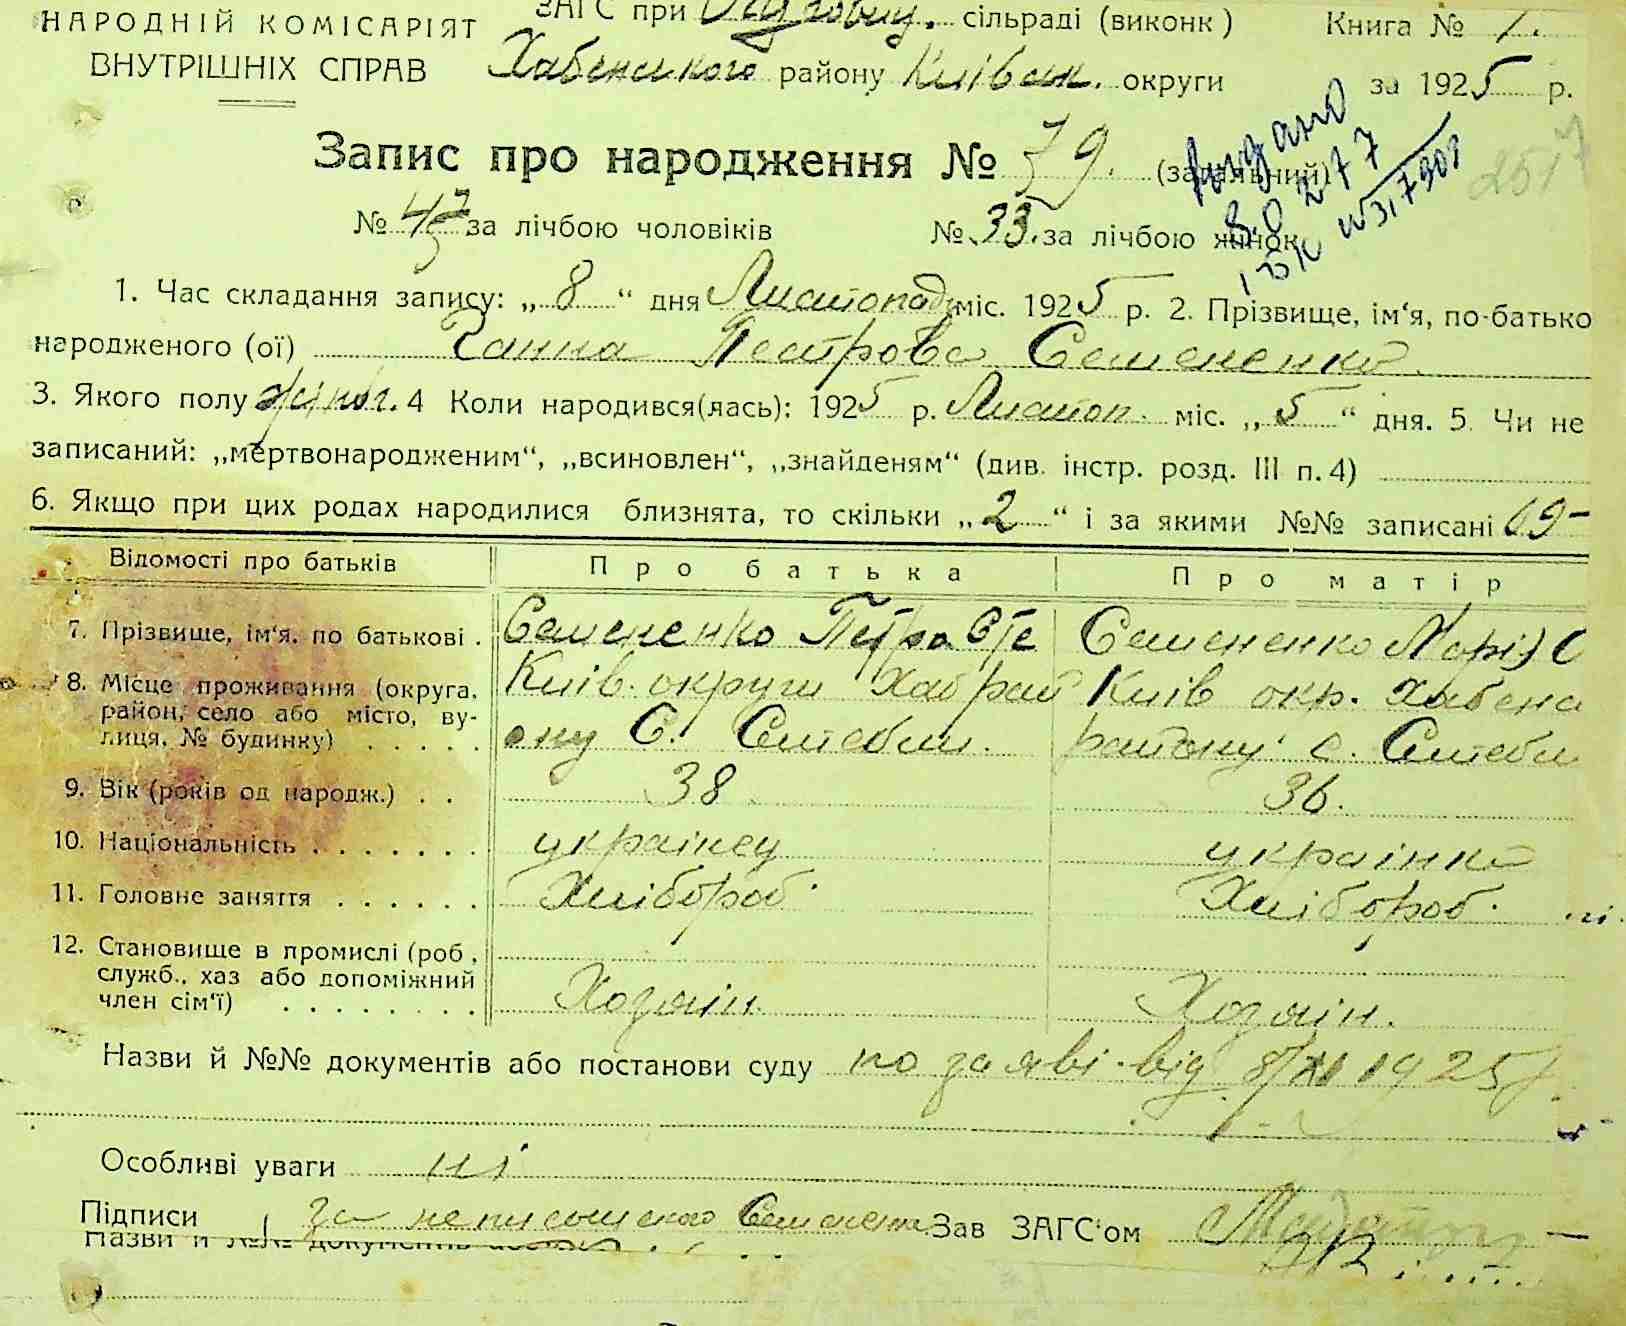 НАРОДНІЙ КОМІСАРІЯТ
ВНУТРІШНІХ СПРАВ
ЗАГС при сільраді (виконк)
Хабенського району Київськ. округи
Книга № 1.
за 1925 р.
Запис про народження № 79. (загальний)
№ за лічбою чоловіків № 33. за лічбою жінок
1. Час складання запису: „ 8 “ дня Листопад міс. 1925 р. 2. Прізвище, ім‘я, по-батько
народженого (ої) Ганна Петрова Семененко.
3. Якого полу жіноч. 4 Коли народився(лась): 1925 р. Листоп. міс. „ 5 “ дня. 5. Чи не
записаний: „мертвонародженим“, „всиновлен“, „знайденям“ (див. інстр. розд. III п. 4)
6. Якщо при цих родах народилися близнята, то скільки „ 2 “ і за якими №№ записані
Відомості про батьків Про батька Про матір
7. Прізвище, ім‘я, по батькові. Семененко Петро Сте Семененко Марія С
8. Місце проживання (округа, Київ. округи Хаб рай Київ окр. Хабенс
район, село або місто, ву- ону С. району с.
лиця, № будинку)
9. Вік (років од народж.) 38 36.
10. Національність українец українка
11. Головне заняття Хлібороб Хлібороб.
12. Становище в промислі (роб.,
служб., хаз або допоміжний
член сім‘ї) Хозяін. Хозяін.
Назви й №№ документів або постанови суду по заяві від 8/XI 1925 р.
Особливі уваги ні
Підписи за неписьменого Семененко Зав ЗАГС‘ом
Назви й №№ документів